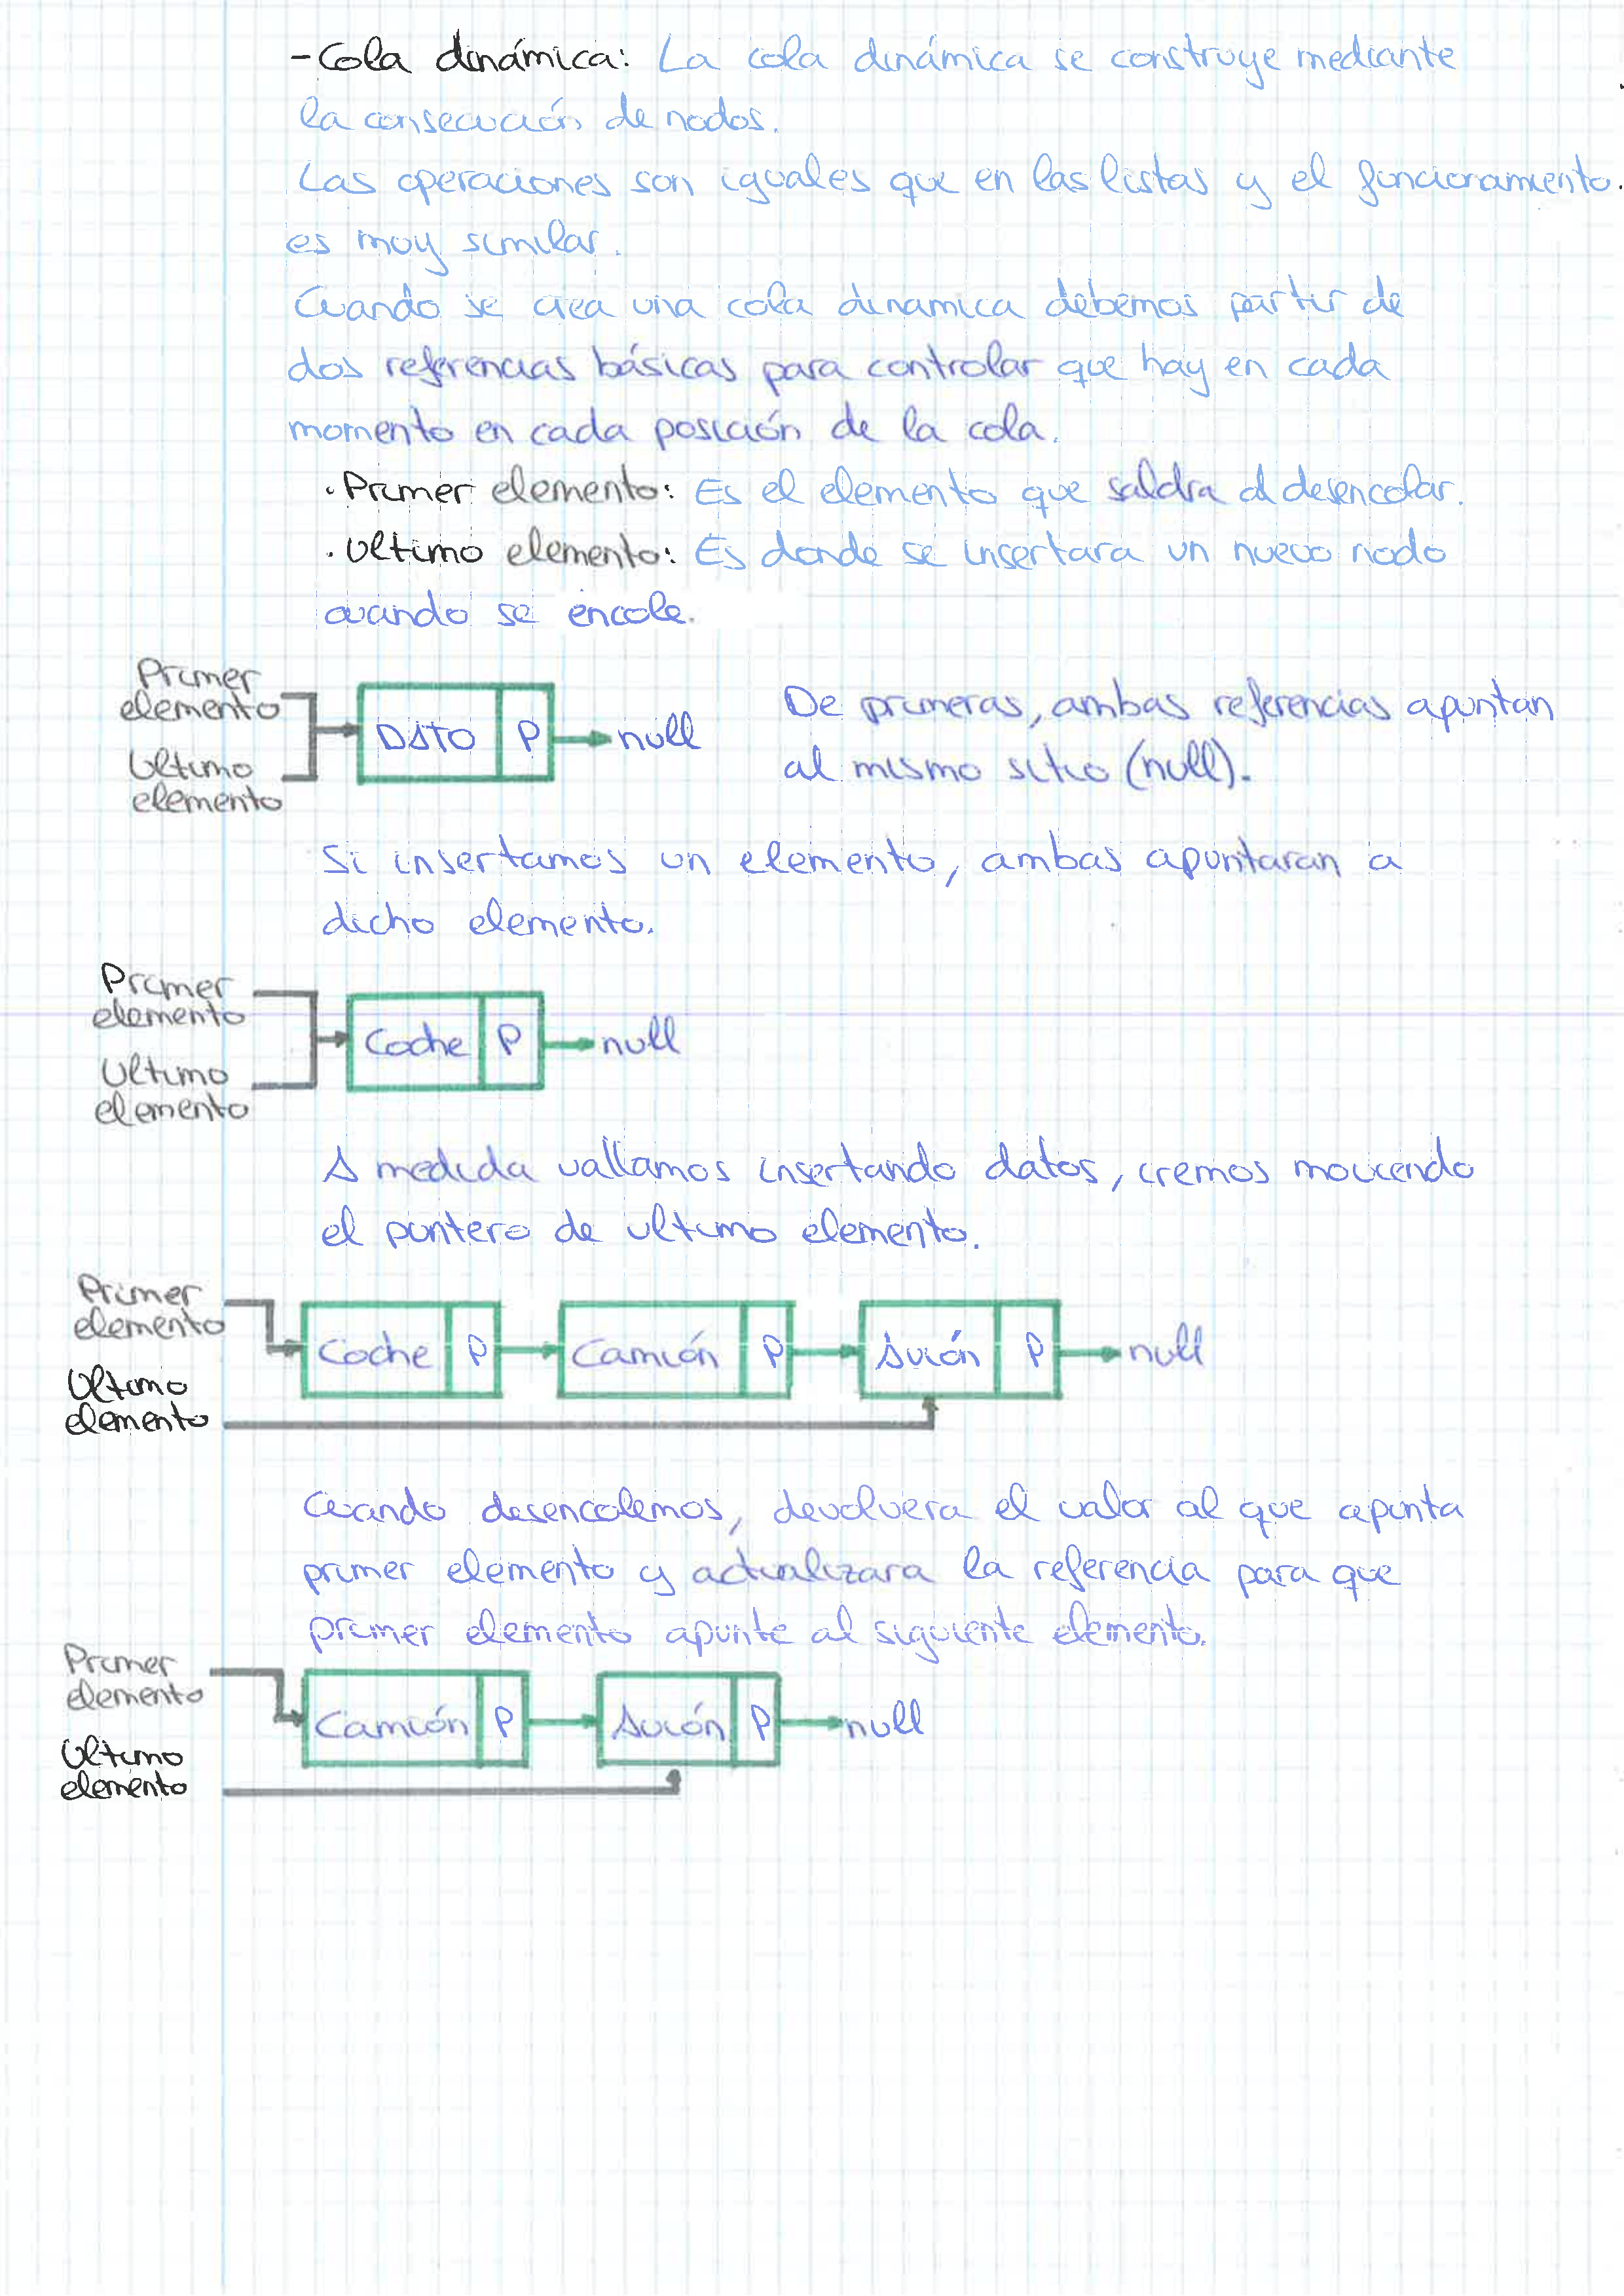 - Cola dinámica: La cola dinámica se construye mediante
la consecución de nodos.
Las operaciones son iguales que en las listas y el funcionamiento.
es muy similar.
Cuando se crea una cola dinamica debemos partir de
dos referencias básicas para controlar que hay en cada
momento en cada posición de la cola.
· Primer elemento: Es el elemento que saldra al desencolar.
· Ultimo elemento: Es donde se insertara un nuevo nodo
cuando se encole.
Primer
elemento
Ultimo
elemento
DATO P null
De primeras, ambas referencias apuntan
al mismo sitio (null).
Si insertamos un elemento, ambas apuntaran a
dicho elemento.
Primer
elemento
Ultimo
elemento
Coche P null
A medida vallamos insertando datos, iremos moviendo
el puntero de ultimo elemento.
Primer
elemento
Ultimo
elemento
Coche P Camión P Avión P null
Cuando desencolemos, devolvera el valor al que apunta
primer elemento y actualizara la referencia para que
primer elemento apunte al siguiente elemento.
Primer
elemento
Ultimo
elemento
Camión P Avión P null